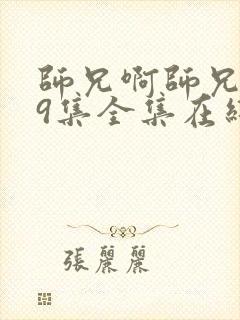 師兄啊師兄
9集全集在
張麗麗